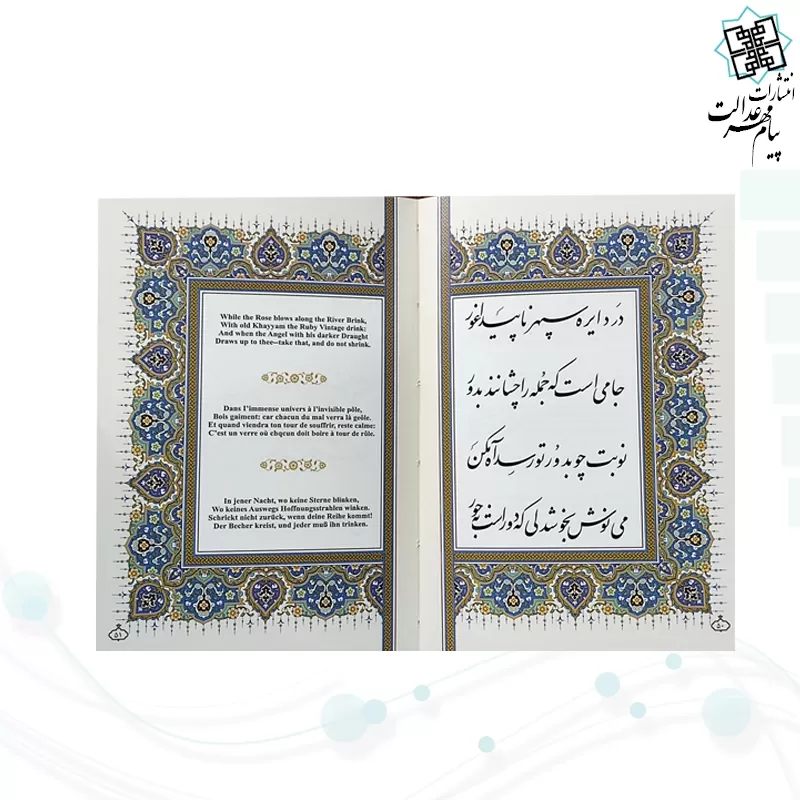 انتشارات
پیام مهر عدالت
While the Rose blows along the River Brink,
With old Khayyam the Ruby Vintage drink:
And when the Angel with his darker Draught
Draws up to thee--take that, and do not shrink.
Dans l'immense univers à l'invisible pôle,
Bois gaiment: car chacun du mal verra là geôle.
Et quand viendra ton tour de souffrir, reste calme:
C'est un verre où chqcun doit boire à tour de rôle.
In jener Nacht, wo keine Sterne blinken,
Wo keines Auswegs Hoffnungsstrahlen winken.
Schrickt nicht zurück, wenn deine Reihe kommt!
Der Becher kreist, und jeder muß ihn trinken.
۵۱
در دایره سپهر ناپیدا غور
جامی است که جمله را چشانند بدور
نوبت چو بدور تو رسد آه مکن
می نوش بخوشدلی که دور است بجور
۵۰